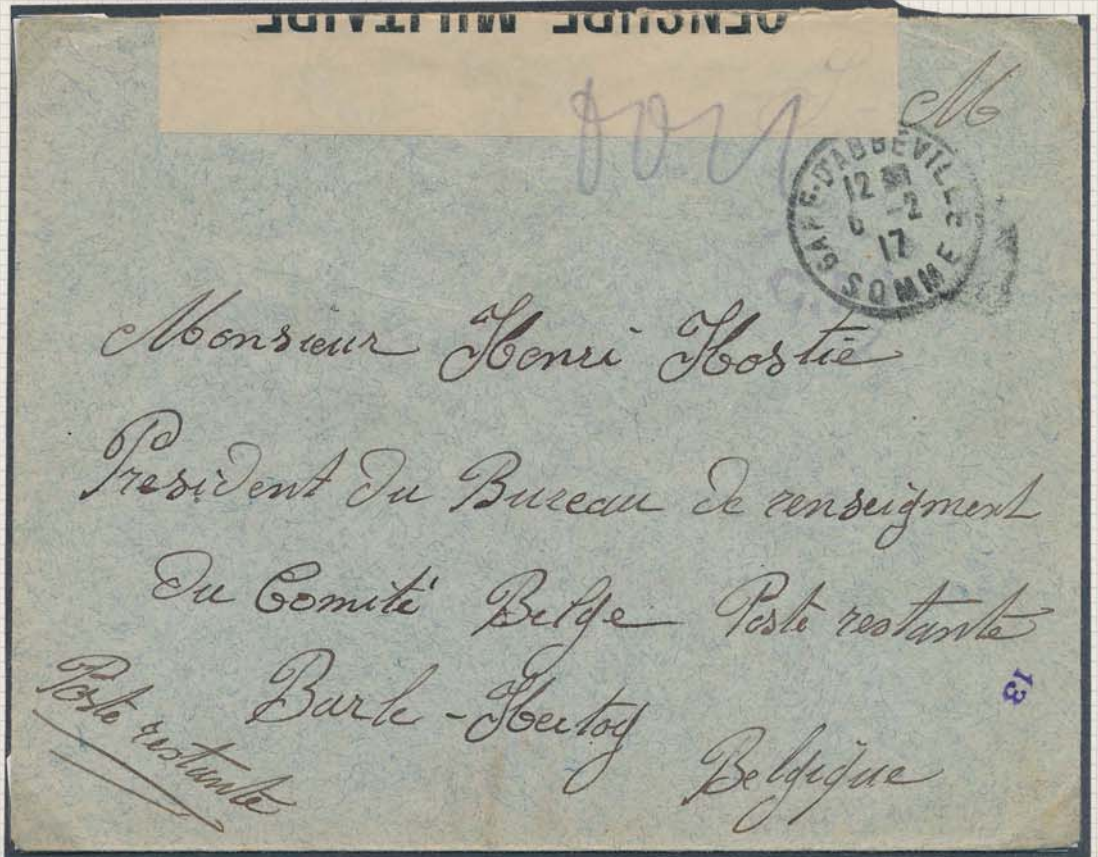 CENSURE MILITAIRE
M
GARE-D'ABBEVILLE
12
6 -2
17
SOMME
Monsieur Henri Hostie
President du Bureau de renseigment
du Comité Belge Poste restante
Barle-Hertog
Poste restante
Belgique
13